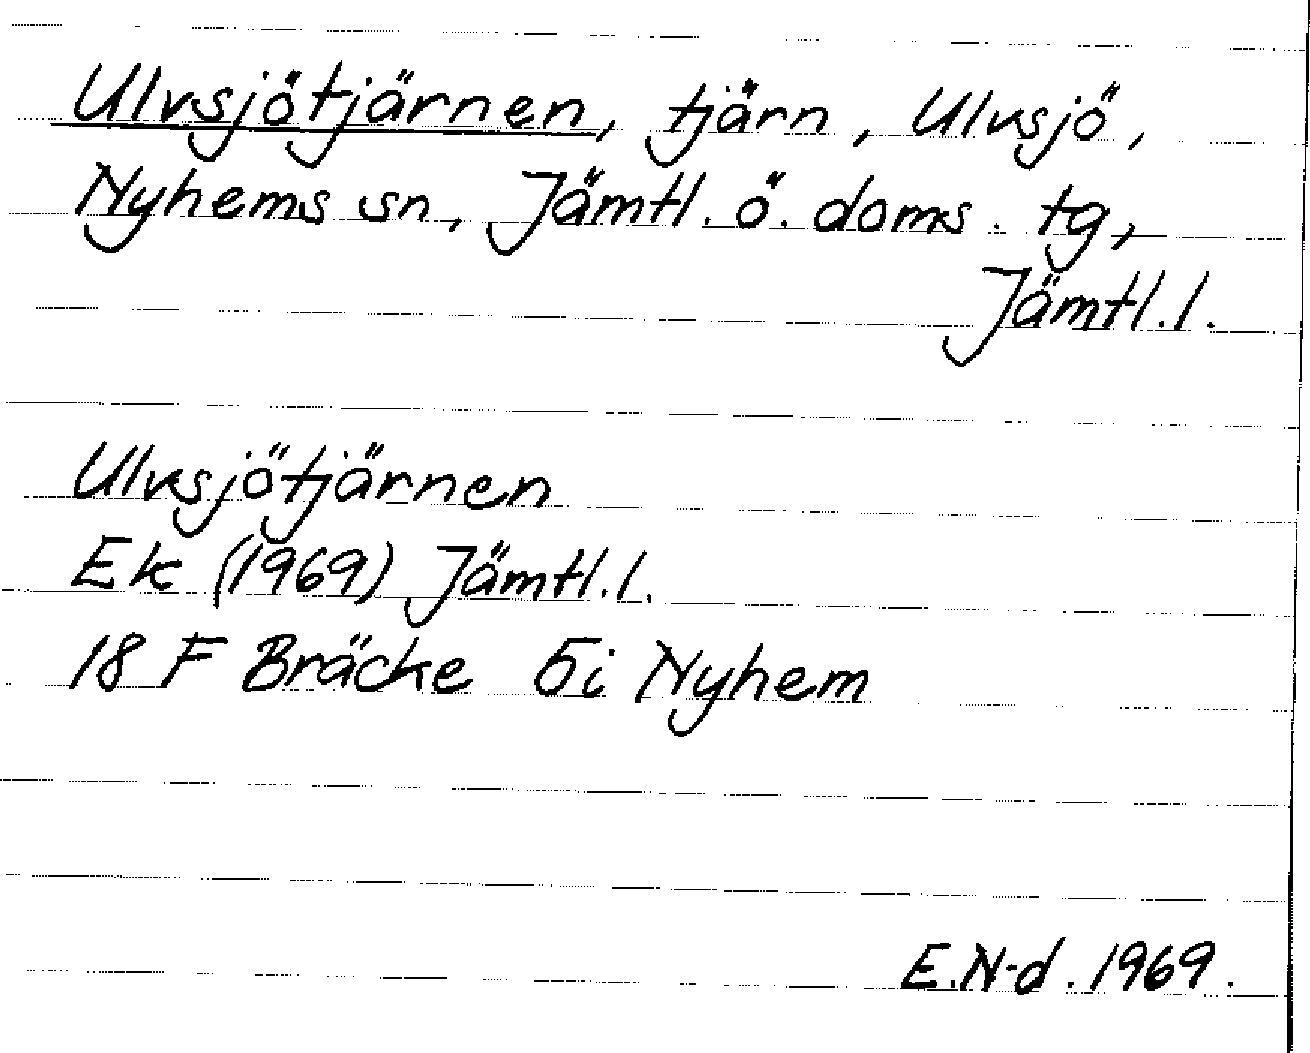 Ulvsjötjärnen, tjärn, Ulvsjö,
Nyhems sn, Jämtl. ö. doms. tg,
Jämtl. l.
Ulvsjötjärnen
Ek (1969) Jämtl. l.
18 F Bräcke 5i Nyhem
E.N-d. 1969.